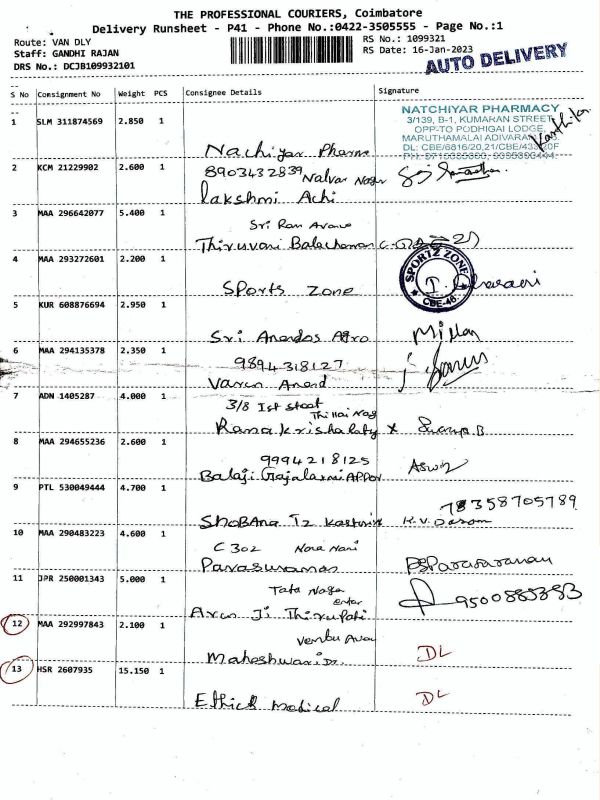 THE PROFESSIONAL COURIERS, Coimbatore
Delivery Runsheet - P41 - Phone No.:0422-3505555 - Page No.:1
Route: VAN DLY
Staff: GANDHI RAJAN
DRS No.: DCJB109932101
RS No.: 1099321
RS Date: 16-Jan-2023
AUTO DELIVERY
S No Consignment No Weight PCS Consignee Details Signature
1 SLM 311874569 2.850 1
NATCHIYAR PHARMACY
3/139, B-1, KUMARAN STREET,
OPP-TO PODHIGAI LODGE,
MARUTHAMALAI ADIVARAM
Nachiyar Pharma
2 KCM 21229902 2.600 1 8903432839 Nalvar Nagar
Lakshmi Achi
3 MAA 296642077 5.400 1
Sri Ram Avanue
Thiruvani
4 MAA 293272601 2.200 1
SPORTZ ZONE
CBE-46
Sports Zone
5 KUR 608876694 2.950 1
Sri Anandos Agro
6 MAA 294135378 2.350 1
9894318127
Varun Anand
7 ADN 1405287 4.000 1
3/8 Ist Street
Thillai Nag
x Swarup B
8 MAA 294655236 2.600 1
9994218125
Balaji Gajalaxmi
Aswin
9 PTL 530049444 4.700 1
ShoBAna
10 MAA 290483223 4.600 1
C 302
Parasuraman
11 JPR 250001343 5.000 1
Tata Nagar
Arun Ji Thirupati
9500885383
12 MAA 292997843 2.100 1
Maheshwari
DL
13 HSR 2607935 15.150 1
Ethick Medical
DL